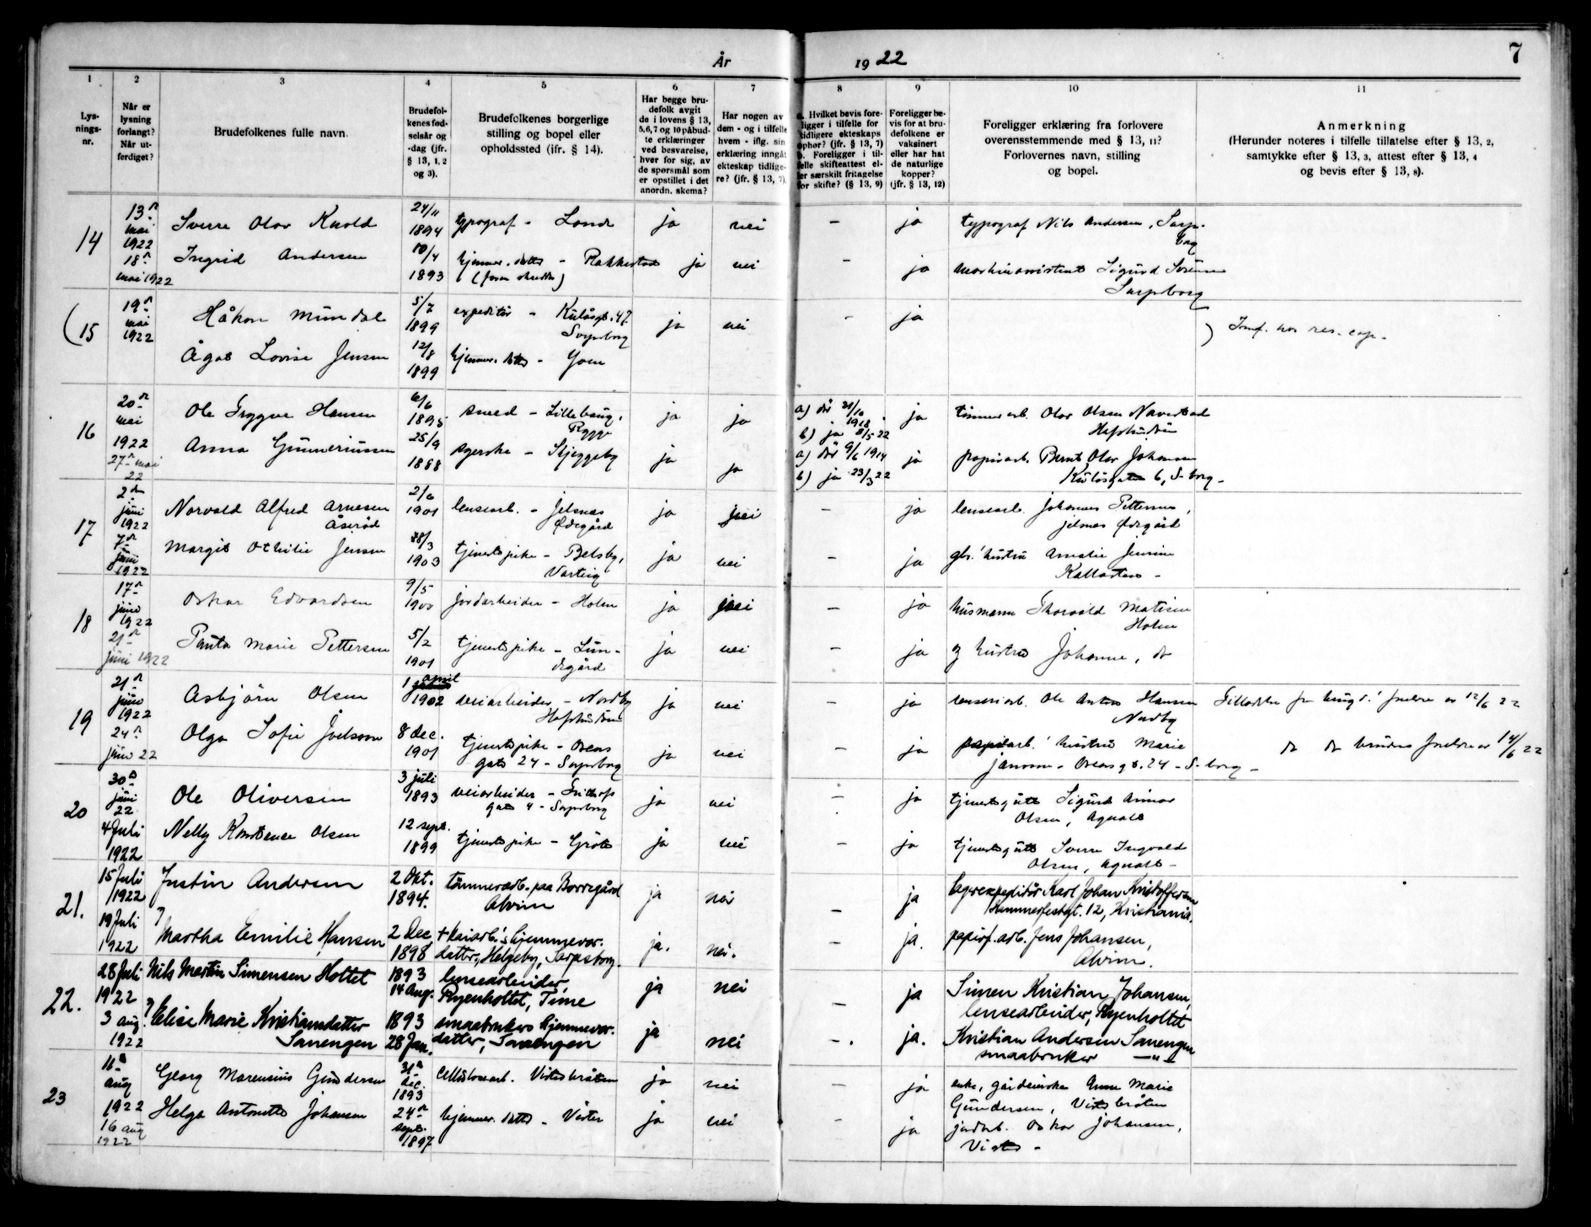 År 1922
7
1 2 3 4 5 6 7 8 9 10 11
Lysningsnr.
Når er lysning forlangt? Når utferdiget?
Brudefolkenes fulle navn.
Brudefolkenes fødselsår og -dag (jfr. § 13, 1, 2 og 3).
Brudefolkenes borgerlige stilling og bopel eller opholdssted (ifr. § 14).
Har begge brudefolk avgit de i lovens § 13, 5,6,7 og 10 påbudte erklæringer ved besvarelse, hver for sig, av de spørsmål som er opstillet i det anordn. skema?
Har nogen av dem - og i tilfelle hvem - iflg. sin erklæring inngåt ekteskap tidligere? (jfr. § 13, 7)
a. Hvilket bevis foreligger i tilfelle for tidligere ekteskaps ophør? (jfr. § 13, 7) b. Foreligger i tilfelle skifteattest eller særskilt fritagelse for skifte? (§ 13, 9)
Foreligger bevis for at brudefolkene er vaksinert eller har hat de naturlige kopper? (jfr. § 13, 12)
Foreligger erklæring fra forlovere overensstemmende med § 13, 11? Forlovernes navn, stilling og bopel.
Anmerkning (Herunder noteres i tilfelle tillatelse efter § 13, 2, samtykke efter § 13, 3, attest efter § 13, 4 og bevis efter § 13, 8).
14 13 mai 1922 Sverre Olav Kvold 24/11 1894 typograf - Lande ja nei - ja typograf Nils Andersen, Sarpborg
18 mai 1922 Ingrid Andersen 10/4 1893 hjemmev. datter - Rakkestad ja nei - ja Sigurd Sarpsborg
(15 19 mai 1922 Håkon Mundal 5/7 1899 expeditør - Kulåsgt. 47 Sarpsborg ja nei - ja
Ågot Lovise Jensen 12/8 1899 hjemmev. datter - Yven ) Innf. hos res. cap.
16 20 mai 1922 Ole Trygve Hansen 6/6 1895 smed - Lillehaug, Rygge ja ja b) ja 8/5 22 ja tømmerarb. Olav Olsen Naverstad Hafslundsøen
27 mai 22 Anna Gunneriussen 25/9 1888 syerske - Skjeggeby ja ja a) død 9/6 1914 b) ja 23/3 22 ja papirarb. Bernt Olav Johansen Kulåsgaten 6, S-borg -
17 2 juni 1922 Norvald Alfred Arnesen Åserød 2/6 1901 lensearb. - Jelsnes Ødegård ja nei - ja lensearb. Johannes Pettersen, Jelsnes Ødegård
7 juni 1922 Margit Othilie Jensen 28/3 1903 tjenestepike - Betsby, Varteig ja nei - ja gbr. hustru Amalie Jensen
18 17 juni 1922 Oskar Edvardsen 9/5 1900 jordarbeider - Holen ja nei - ja husmann Thorvald Matisen Holen
21 juni 1922 Marie Pettersen 5/2 1901 tjenestepike - Lundegård ja nei - ja og hustru Johanne, do
19 21 juni 1922 Asbjørn Olsen 1 april 1902 veiarbeider - Nordby Hafslundsøen ja nei - ja lensearb. Ole Anton Hansen Nordby Tilladelse fra brudg.' foreldre av 12/6 22
24 juni 22 Olga Sofie Joelsson 8 dec. 1901 tjenestepike - Oscars gate 24 - Sarpsborg ja nei - ja hustru Marie Jansson - Oscars gt. 24 - S-borg - do do brudens foreldre av 14/6 22
20 30 juni 22 Ole Oliversen 3 juli 1893 veiarbeider - Fritjofs gate 4 - Sarpsborg ja nei - ja tjenestegutt Sigurd Olsen, Agnalt
4 Juli 1922 Nelly Konstanse Olsen 12 sept. 1899 tjenestepike - Grøte ja nei - ja tjenestegutt Sverre Ingvald Olsen, Agnalt -
21. 15 Juli 1922 Justin Andersen 2 Okt. 1894. tømmerarb. paa Borregård Alvim ja nei - ja lagerexpeditør Karl Johan Kristoffersen Hammerfestgt. 12, Kristiania.
19 Juli 1922 Martha Emilie Hansen 2 Dec 1898 kaiarb.'s hjemmevær. datter, Helgeby, Sarpsborg. ja. nei. ja. papirf.arb. Jens Johansen, Alvim.
22. 28 Juli 1922 Nils Martin Simensen Holtet 1893 14 Aug. lensearbeider, Ryenholtet, Tune ja nei - ja Simen Kristian Johansen, lensearbeider, Ryenholtet
3 aug. 1922 Elise Marie Kristiansdatter Sanengen 1893 28 Jan. smaabrukers hjemmevær. datter, Sanengen ja nei - ja. Kristian Andersen Sanengen smaabruker —"—
23 11 aug 1922 Georg Marensius Gundersen 31 dec. 1893 cellulosearb. Vistebråten ja nei - ja enke, gårdeierske Anne Marie Gundersen, Vistebråten
16 aug 1922 Helga Antonette Johansen 24 sept. 1897 hjemmev. datter - Vister ja nei - ja jordarb. Oskar Johansen, Viste -